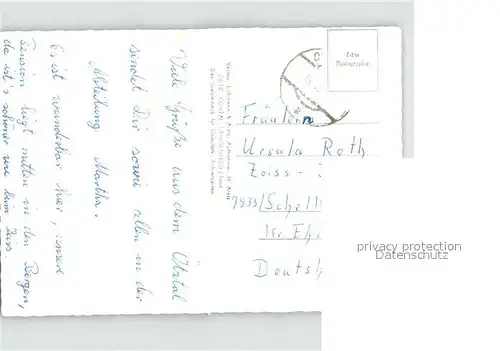 Viele Grüße aus dem Ötztal
sendet Dir sowie allen in der
Abteilung Martha.
Es ist wunderbar hier, unsere
Pension liegt mitten in den Bergen,
da ist's schöner wie beim Zeiss.
Echte
Photographie
Fräulein
Ursula Roth
Zeiss -
7933/Schell
Kr. Eh
Deuts
privacy protection
Datenschutz